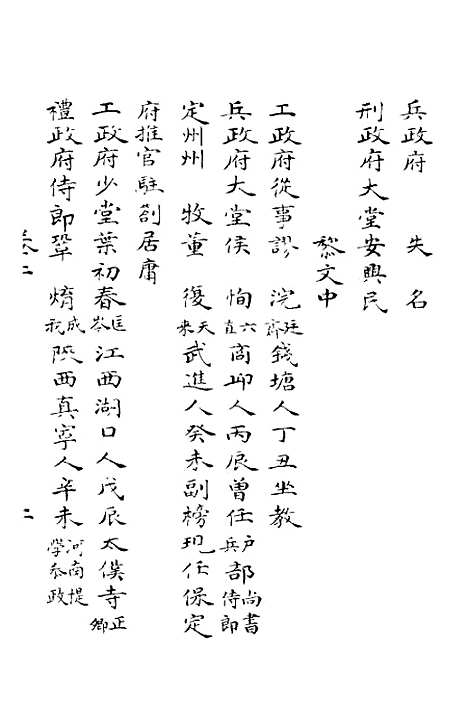 兵政府　失　名
刑政府大堂安興民
黎文中
工政府從事謬　浣廷齋錢塘人丁丑坐教
兵政府大堂侯　恂六直商邱人丙辰曾任戶兵部尚書侍郎
定州州　牧董　復天來武進人癸未副榜現任保定
府推官駐劄居庸
工政府少堂葉初春匡岑江西湖口人戊辰太僕寺正卿
禮政府侍郎鞏　焴成我陝西真寧人辛未河南提學叅政
卷二　二